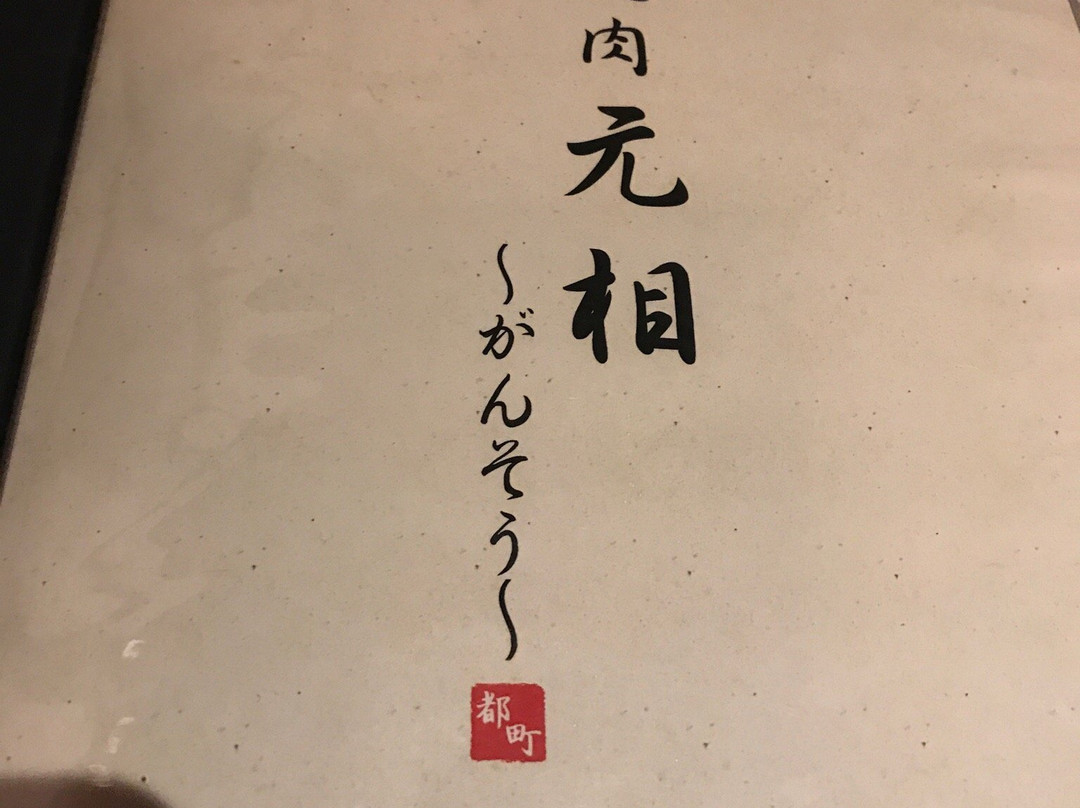 肉元相
〜がんそう〜
都町